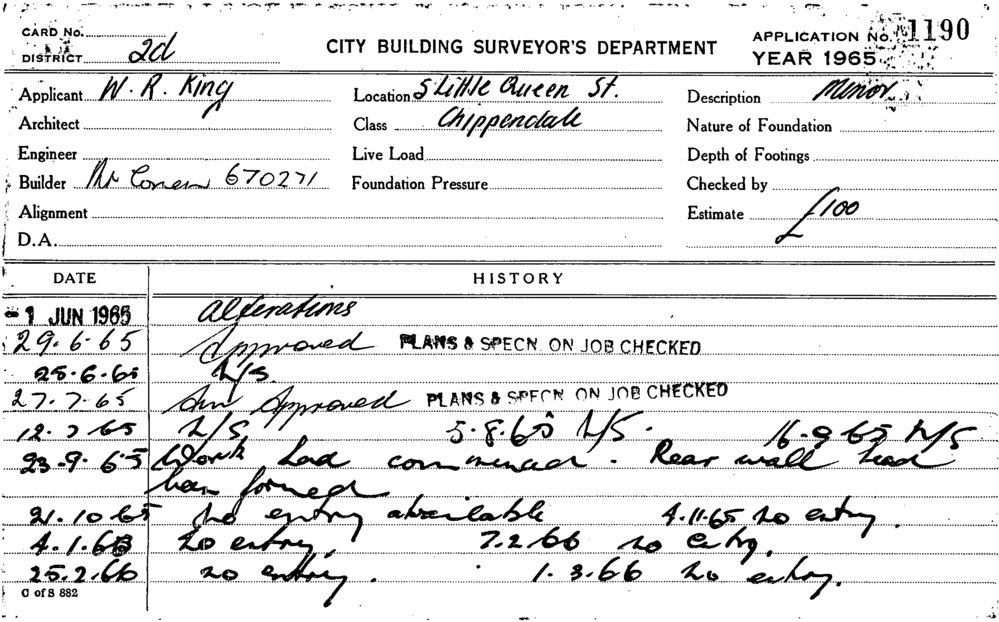 CARD No.
DISTRICT 2d
CITY BUILDING SURVEYOR'S DEPARTMENT
APPLICATION No. 1190
YEAR 1965
Applicant W. R. King
Location 5 Little Queen St.
Description Minor
Architect
Class Chippendale
Nature of Foundation
Engineer
Live Load
Depth of Footings
Builder Mr 670271
Foundation Pressure
Checked by
Alignment
Estimate £100
D.A.
DATE HISTORY
1 JUN 1965 Alterations
29.6.65 Approved PLANS & SPECN. ON JOB CHECKED
25.6.65 N/S.
27.7.65 Approved PLANS & SPECN ON JOB CHECKED
12.7.65 N/S 5.8.65 N/S. 16.9.65 N/S
23.9.65 Work had commenced. Rear wall had
been formed
21.10.65 no entry available 4.11.65 no entry.
4.1.66 no entry. 7.2.66 no entry.
25.2.66 no entry. 1.3.66 no entry.
C of S 882